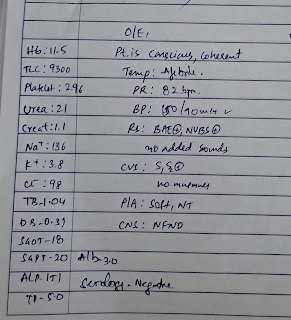 O/E:
Hb: 11.5 Pt. is Conscious, Coherent
TLC: 9300 Temp: Afebrile.
Platlet: 296 PR: 82 bpm.
Urea: 21 BP: 150/90 mmH
Creat: 1.1 RS: BAE⊕, NVBS⊕
Na+: 136 no added sounds
K+: 3.8 CVS: S1S2⊕
Cl-: 98 no murmurs
TB-1.04 P/A: Soft, NT
DB-0.31 CNS: NFND
SGOT-18
SGPT-20 Alb-3.0
ALP-171 Serology-Negative
TP-5.0